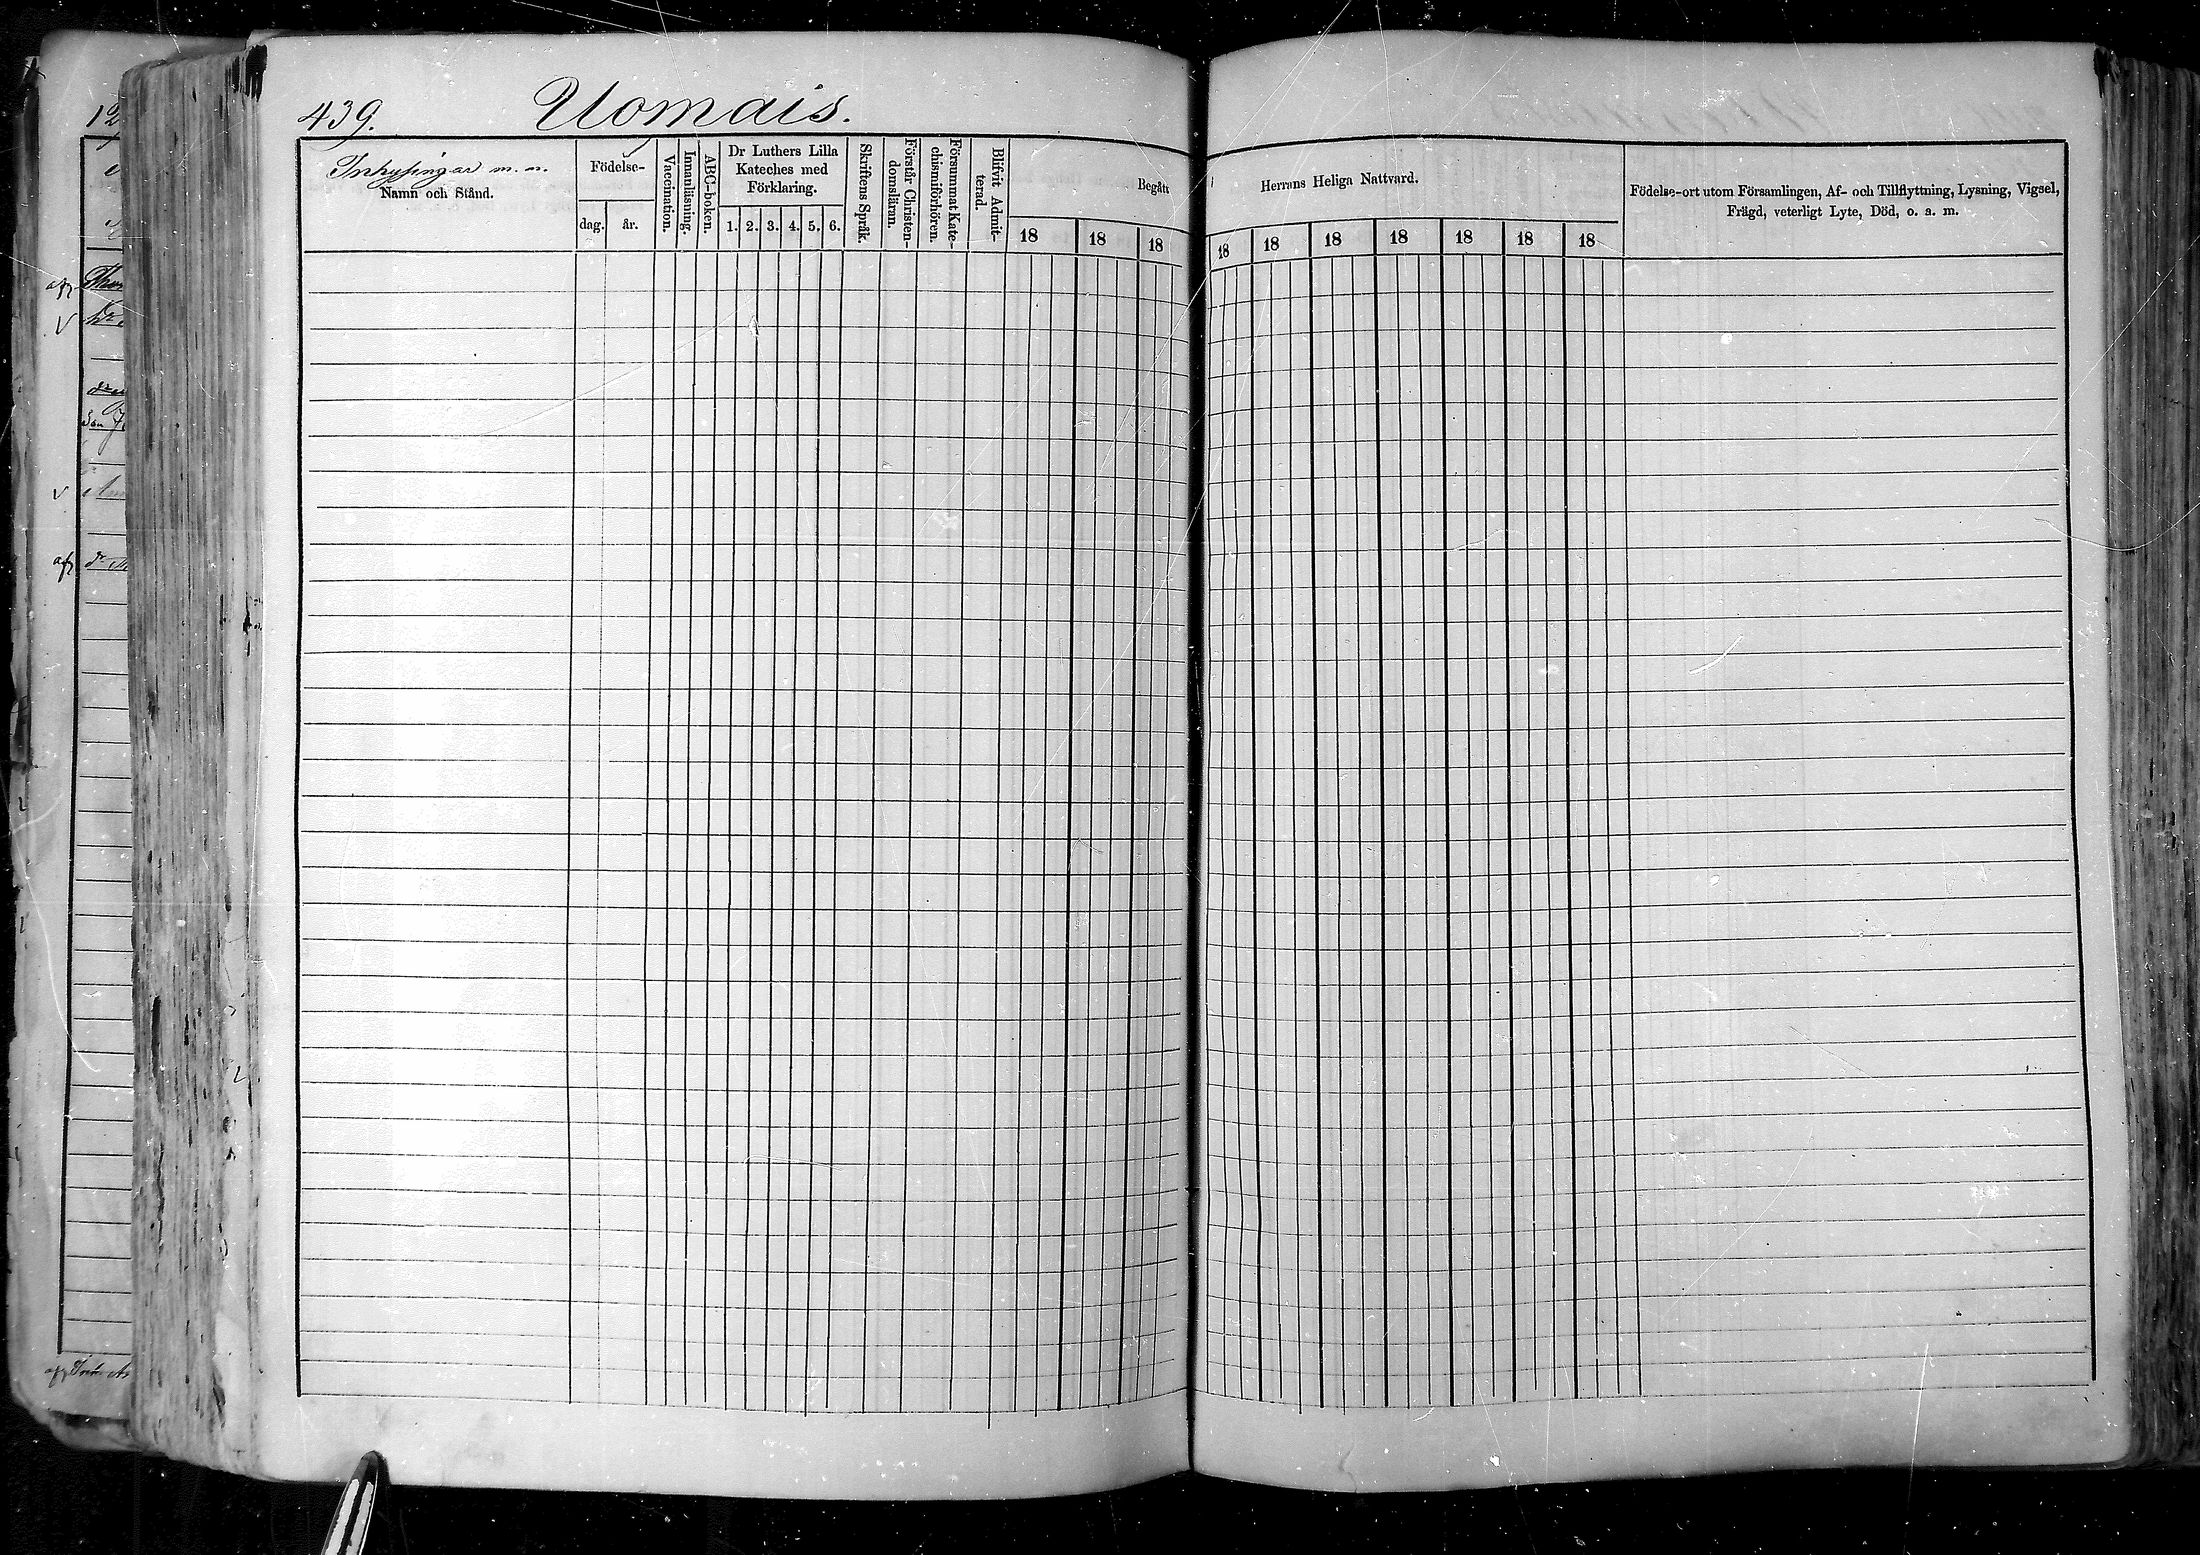 439. Uomais.
Inhysingar m. m.
Namn och Stånd.
Födelse-
dag. år.
Vaccination.
Innanläsning.
ABC-boken.
Dr Luthers Lilla
Kateches med
Förklaring.
1. 2. 3. 4. 5. 6.
Skriftens Språk.
Förstår Christen-
domsläran.
Försummat Kate-
chismiförhören.
Blifvit Admit-
terad.
Begått Herrans Heliga Nattvard.
18 18 18 18 18 18 18 18 18 18
Födelse-ort utom Församlingen, Af- och Tillflyttning, Lysning, Vigsel,
Frägd, veterligt Lyte, Död, o. a. m.